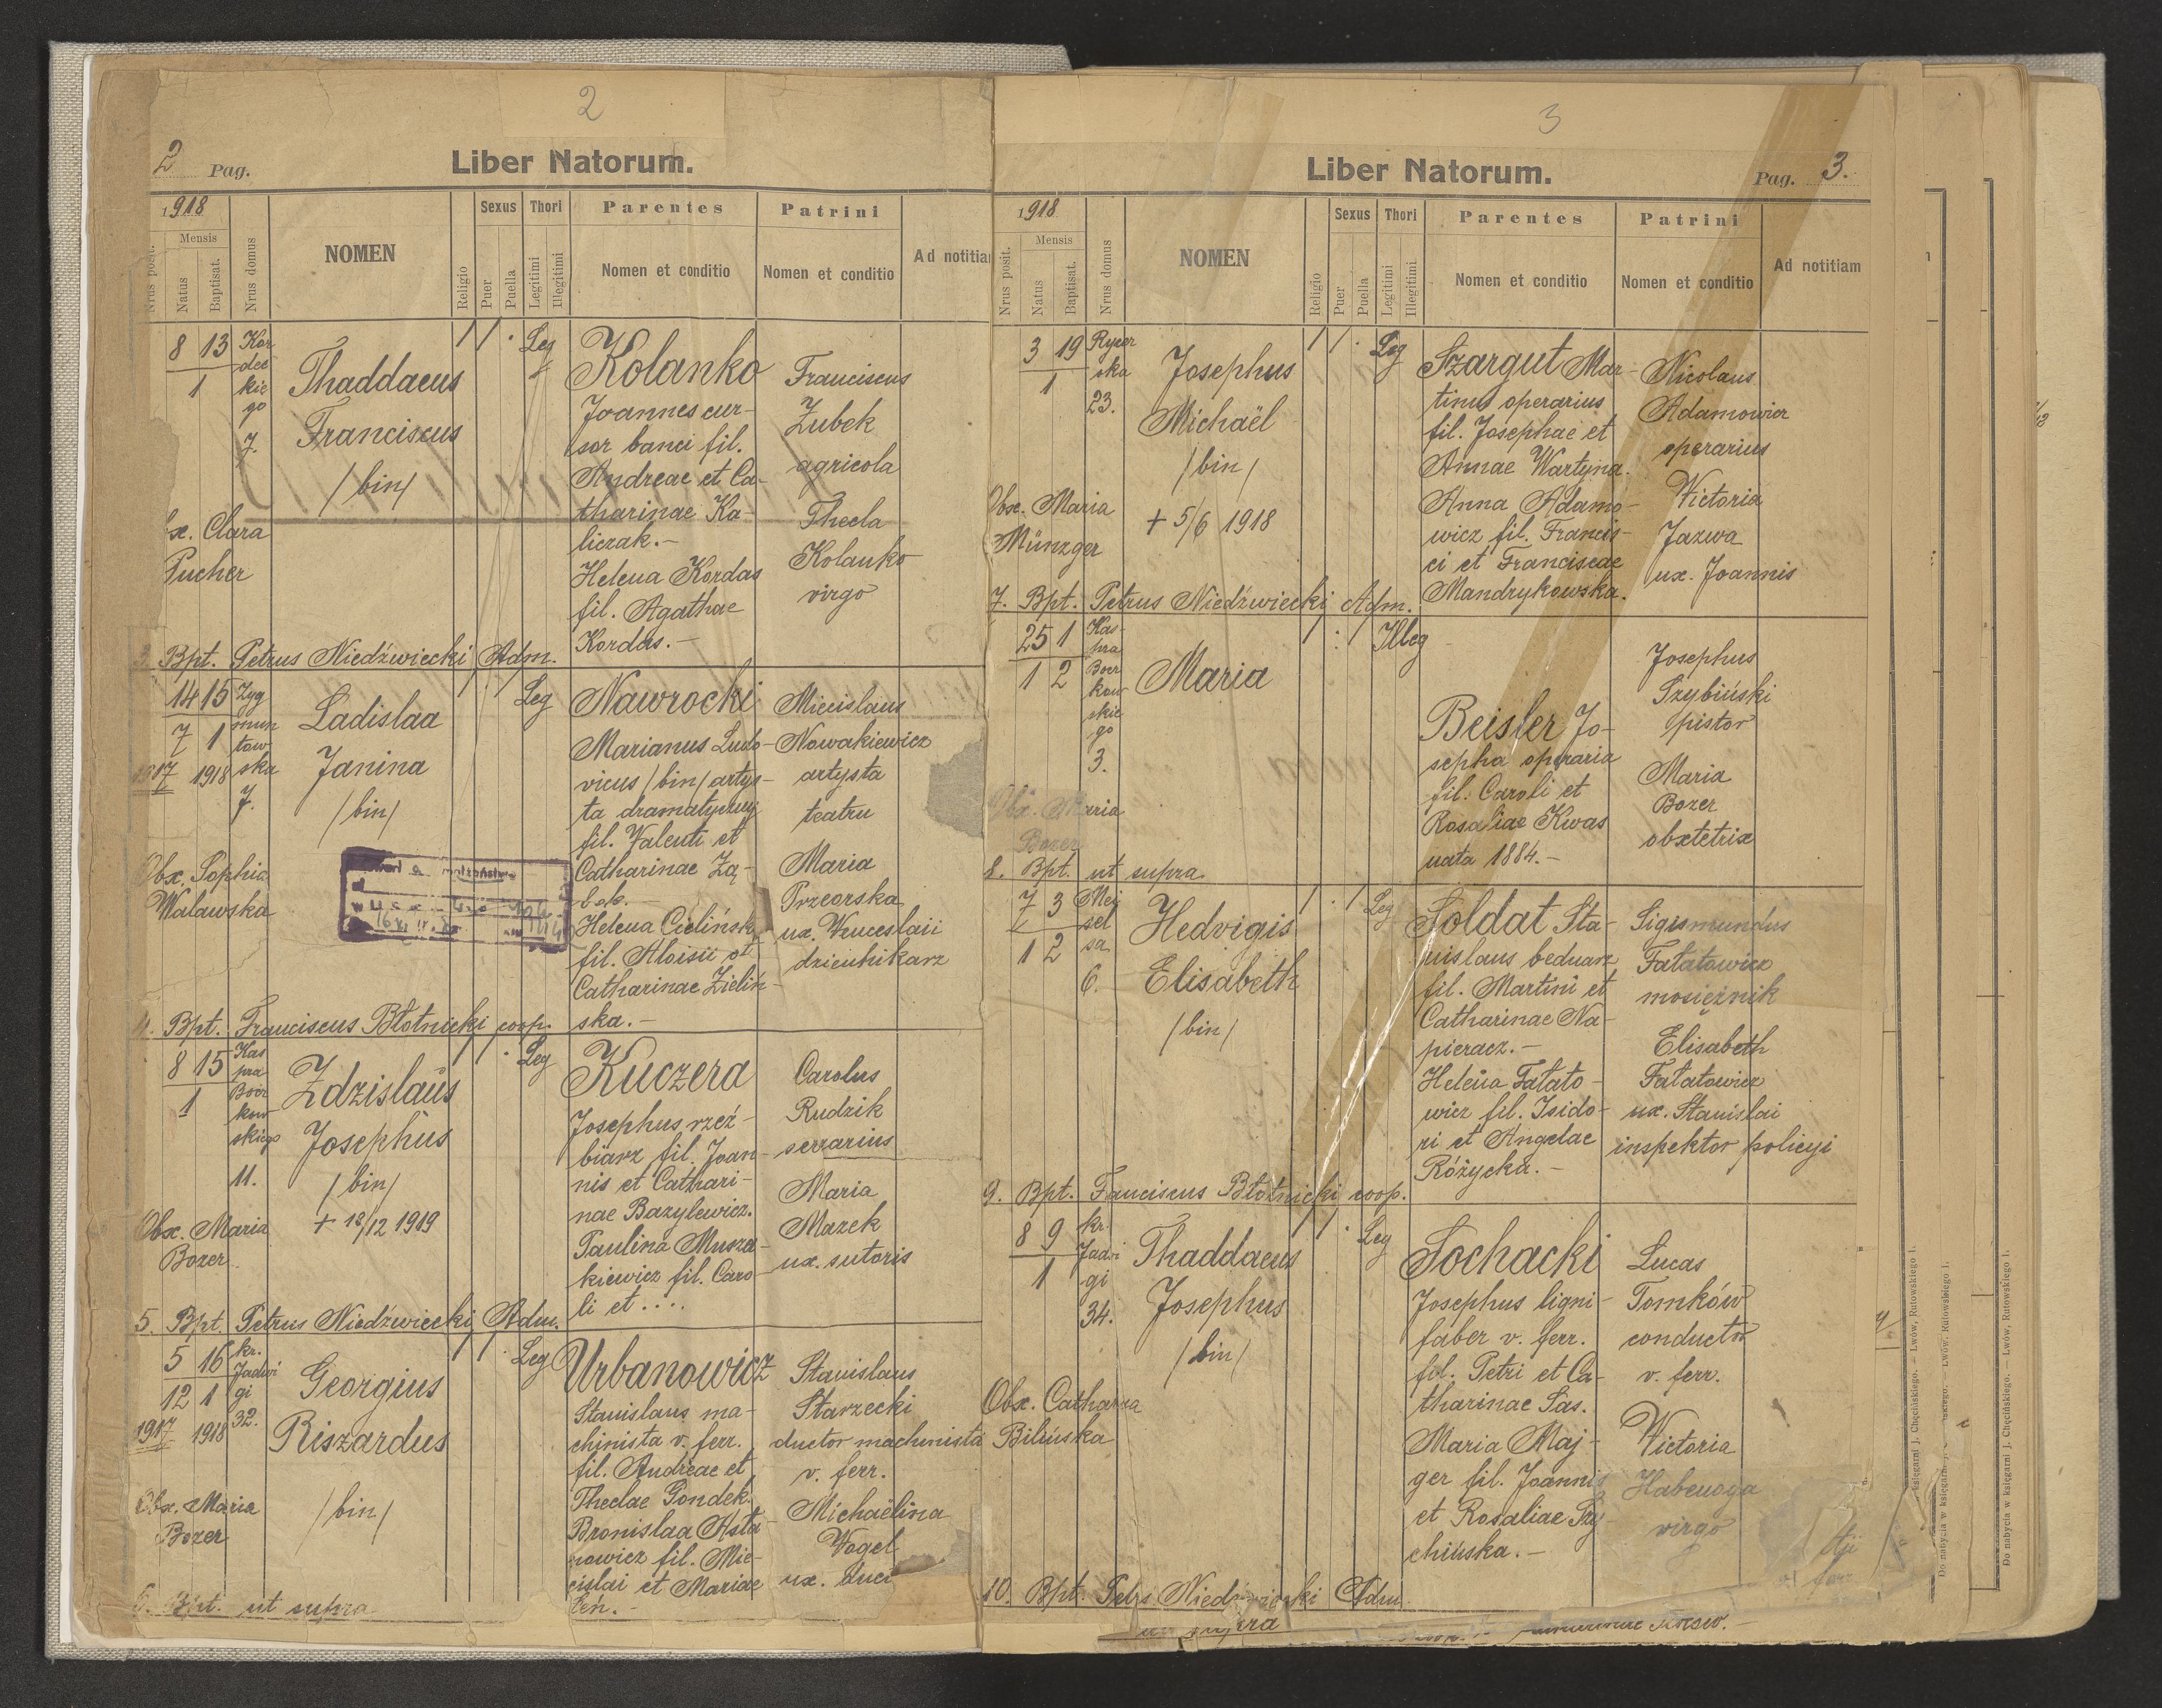 2
2 Pag.
Liber Natorum.
1918
Mensis
Nrus posit.
Natus
Baptisat.
Nrus domus
NOMEN
Religio
Sexus
Puer
Puella
Thori
Legitimi
Illegitimi
Parentes
Nomen et conditio
Patrini
Nomen et conditio
Ad notitiam
8 13
1
Kor
dec
kie
go
7.
Thaddaeus
Franciscus
/bin/
1 1 . Leg
Kolanko
Joannes cur-
sor banci fil.
Andreae et Ca-
tharinae Ka-
liczak.-
Helena Kordas
fil. Agathae
Kordas.-
Franciscus
Zubek
agricola
Thecla
Kolanko
virgo
bx. Clara
Pucher
3. Bpt. Petrus Niedźwiecki Adm.
14 15
7 1
1917 1918
Zyg
mun
tow
ska
7.
Ladislaa
Janina
/bin/
1 . 1 Leg
Nawrocki
Marianus Ludo-
vicus /bin/ artys-
ta dramatyczny
fil. Valenti et
Catharinae Zą-
bek.-
Helena Cielińsk
fil. Aloisii et
Catharinae Zieliń-
ska.-
Miecislaus
Nowakiewicz
artysta
teatru
Maria
Przeorska
ux. Wenceslaii
dzienhikarz
Obx. Sophia
Walawska
4. Bpt. Franciscus Błotnicki coop.
8 15
1
Kas
pra
Bocz
kow
skiego
11.
Zdzislaus
Josephus
/bin/
+ 18/12 1919
1 1 . Leg
Kuczera
Josephus rzeź-
biarz fil. Joan-
nis et Cathari-
nae Bazylewicz.
Paulina Musza-
kiewicz fil. Caro-
li et ....
Carolus
Rudzik
serrarius
Maria
Mazek
ux. sutoris
Obx. Maria
Bozer
5. Bpt. Petrus Niedźwiecki Adm.
5 16
12 1
1917 1918
kr.
Jadwi
gi
32.
Georgius
Riszardus
/bin/
1 1 . Leg
Urbanowicz
Stanislaus ma-
chinista v. ferr.
fil. Andreae et
Theclae Gondek.
Bronislaa Asta-
nowicz fil. Mie-
cislai et Mariae
Leń.-
Stanislaus
Starzecki
ductor machinista
v. ferr.
Michaëlina
Vogel
ux. duci
Obx. Maria
Bozer
6. Bpt. ut supra
3
Liber Natorum.
Pag. 3.
1918
Mensis
Nrus posit.
Natus
Baptisat.
Nrus domus
NOMEN
Religio
Sexus
Puer
Puella
Thori
Legitimi
Illegitimi
Parentes
Nomen et conditio
Patrini
Nomen et conditio
Ad notitiam
3 19
1
Rycer
ska
23.
Josephus
Michaël
/bin/
+ 5/6 1918
1 1 . Leg
Szargut Mar-
tinus operarius
fil. Josephae et
Annae Wartyna.
Anna Adamo-
wicz fil. Francis-
ci et Franciscae
Mandrykowska.
Nicolaus
Adamowicz
operarius
Victoria
Jazwa
ux. Joannis
Obx. Maria
Münzger
7. Bpt. Petrus Niedźwiecki Adm.
25 1
1 2
Kas-
pra
Bocz
kow
skie
go
3.
Maria
1 . 1 Illeg
Beisler Jo-
sepha operaria
fil. Caroli et
Rosaliae Kwas
nata 1884.-
Josephus
Szybiński
pistor
Maria
Bozer
obstetrix
Obx. Maria
Bozer
8. Bpt. ut supra
7 3
1 2
Mej
sel
sa
6.
Hedvigis
Elisabeth
/bin/
1 . 1 Leg
Soldat Sta-
nislaus bednarz
fil. Martini et
Catharinae Na-
pieracz.-
Helena Fatato-
wicz fil. Isido-
ri et Angelae
Różycka.-
Sigismundus
Fatatowicz
mosiężnik
Elisabeth
Fatatowicz
ux. Stanislai
inspektor policyi
9. Bpt. Fanciscus Błotnicki coop.
8 9
1
kr.
Jadwi
gi
34.
Thaddaeus
Josephus
/bin/
1 1 . Leg
Sochacki
Josephus ligni-
faber v. ferr.
fil. Petri et Ca-
tharinae Sas.
Maria Maj-
ger fil. Joannis
et Rosaliae Szy-
chińska.-
Lucas
Tomków
conductor
v. ferr.
Victoria
Habenoga
virgo
Obx. Catharina
Bilińska
10. Bpt. Petrs Niedźwiecki Adm.
Do nabycia w księgarni J. Chęcińskiego. — Lwów, Rutowskiego 1.